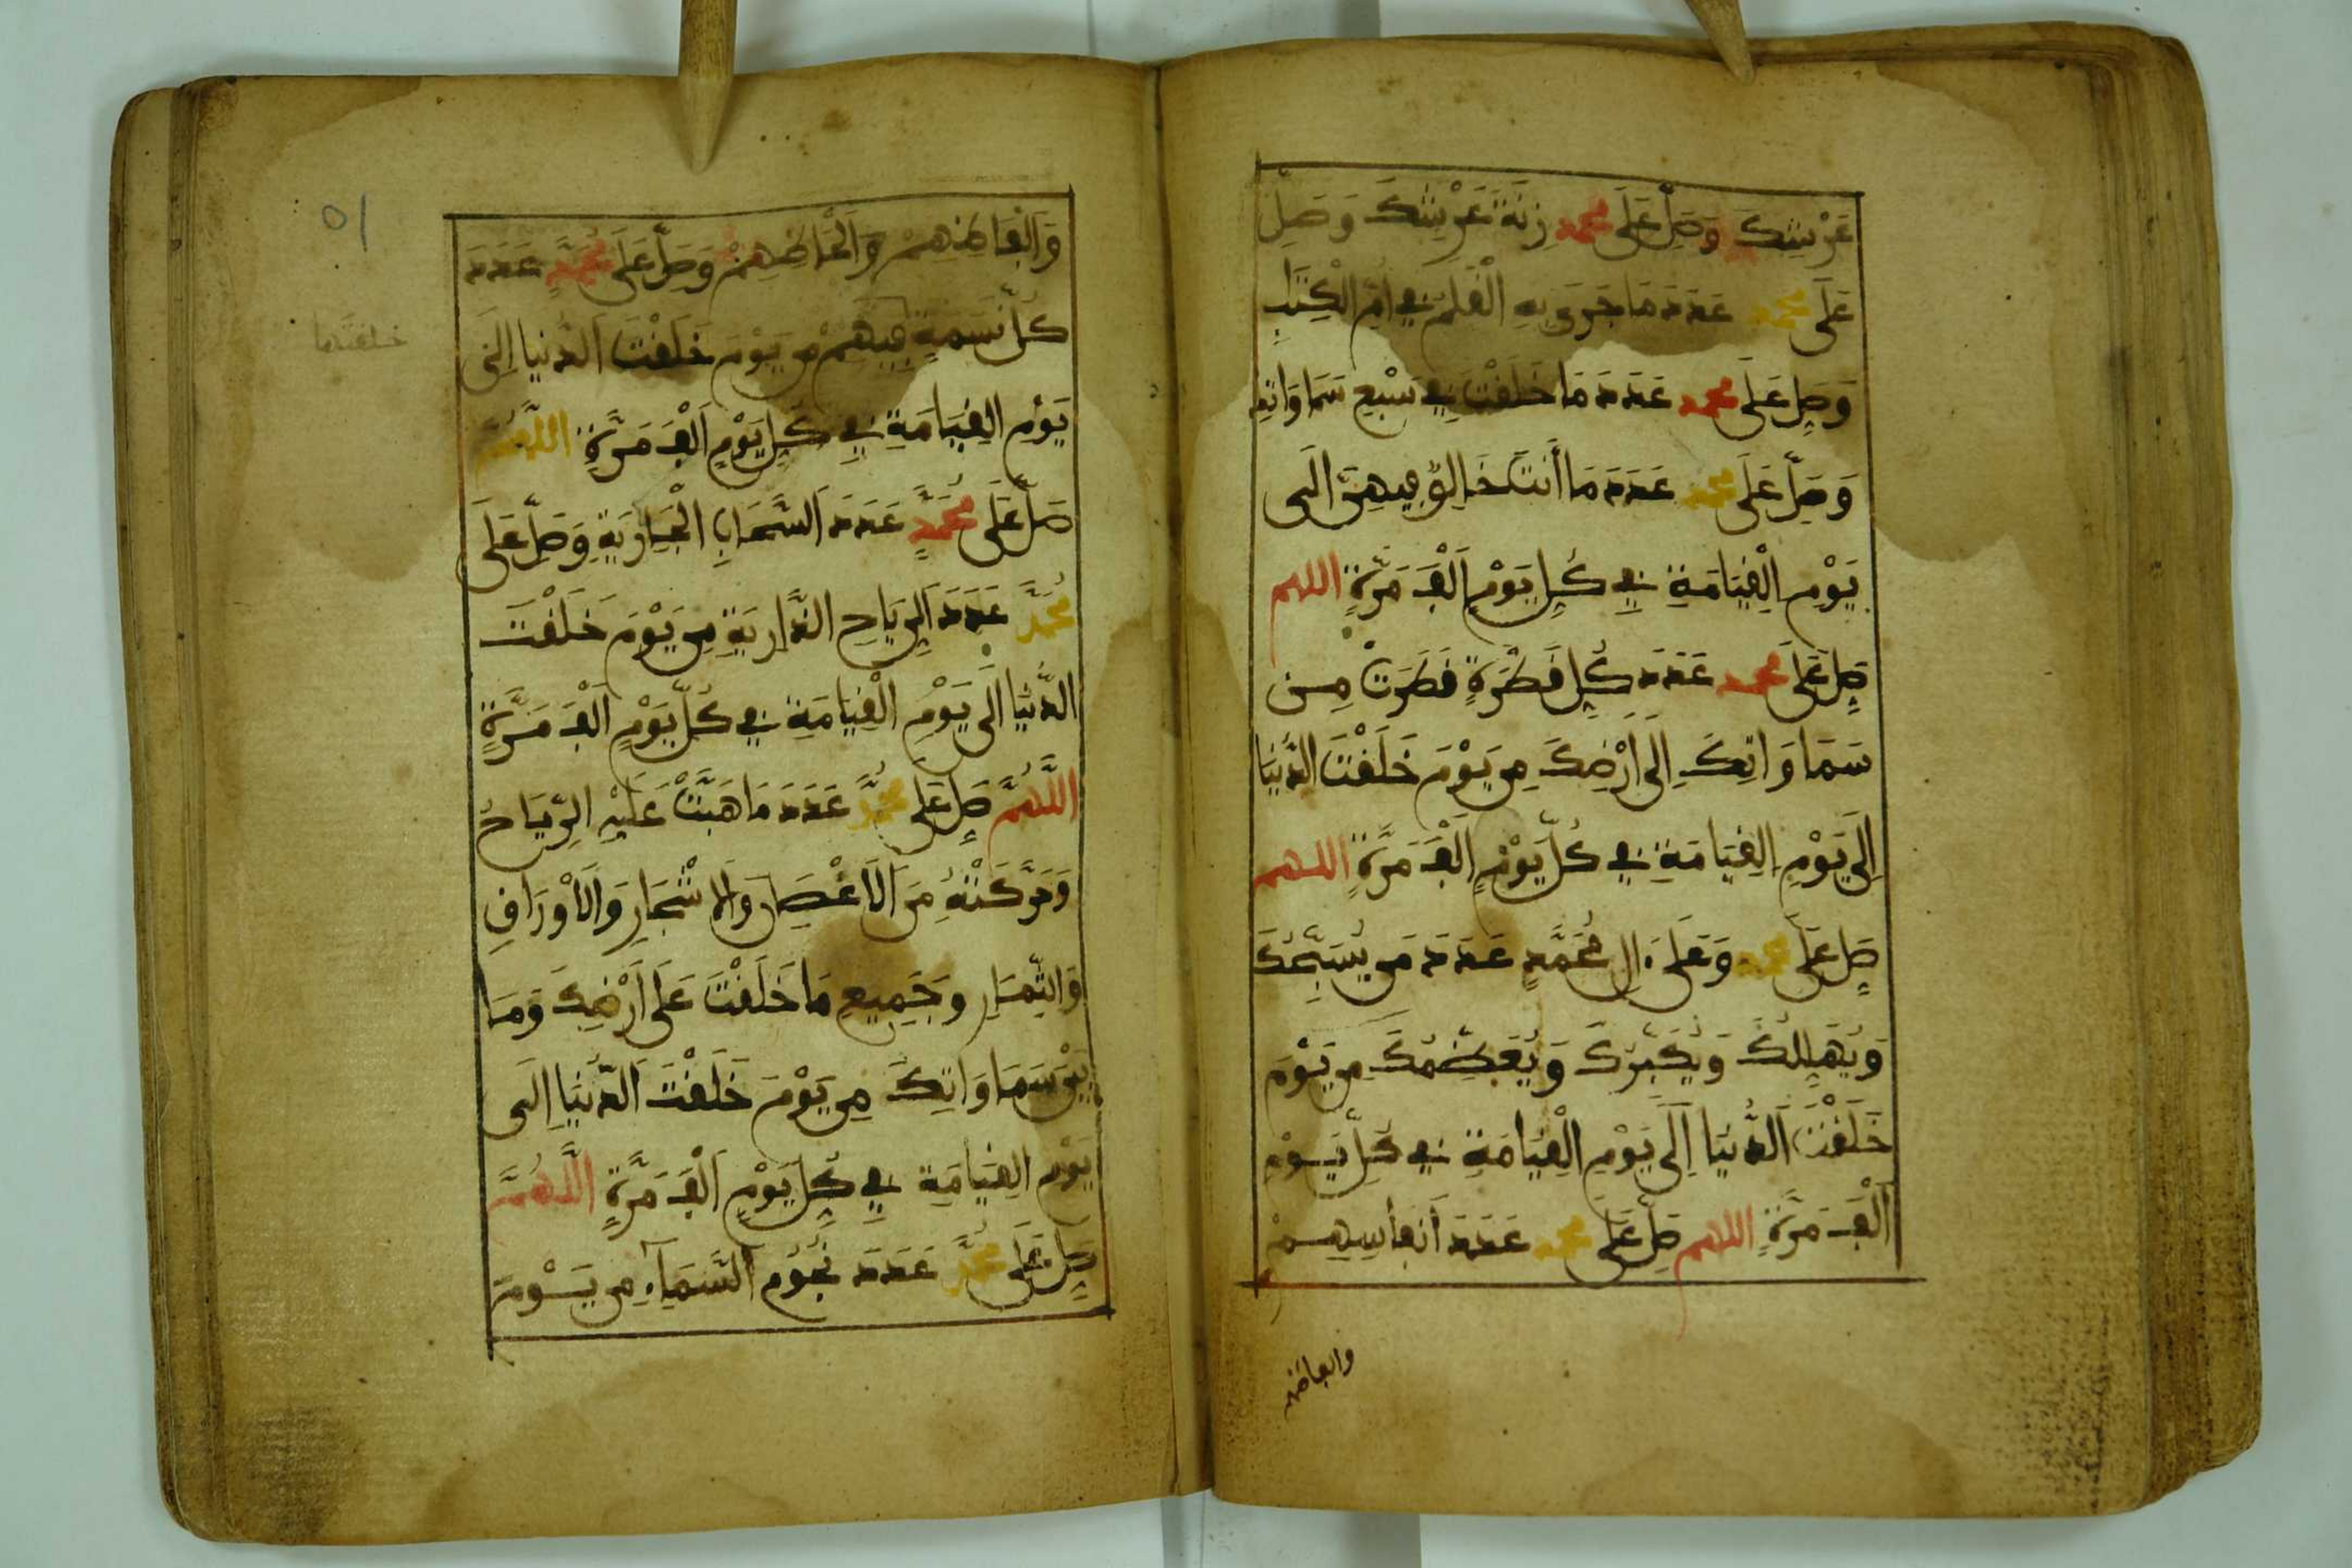 عَرْشِكَ وَصَلِّ عَلَى محمد زِنَةَ عَرْشِكَ وَصَلِّ
عَلَى محمد عَدَدَ مَا جَرَى بِهِ الْقَلَمُ فِي أُمِّ الْكِتَابِ
وَصَلِّ عَلَى محمد عَدَدَ مَا خَلَقْتَ فِي سَبْعِ سَمَاوَاتِكَ
وَصَلِّ عَلَى محمد عَدَدَ مَا أَنتَ خَالِقٌ فِيهِنَّ إِلَى
يَوْمِ الْقِيَامَةِ فِي كُلِّ يَوْمٍ أَلْفَ مَرَّةٍ اللهم
صَلِّ عَلَى محمد عَدَدَ كُلِّ قَطْرَةٍ قَطَرَتْ مِن
سَمَاوَاتِكَ إِلَى أَرْضِكَ مِن يَوْمَ خَلَقْتَ الدُّنْيَا
إِلَى يَوْمِ الْقِيَامَةِ فِي كُلِّ يَوْمٍ أَلْفَ مَرَّةٍ اللهم
صَلِّ عَلَى محمد وَعَلَى ءَالِ مُحَمَّدٍ عَدَدَ مَن يُسَبِّحُكَ
وَيُهَلِّلُكَ وَيُكَبِّرُكَ وَيُعَظِّمُكَ مِن يَوْمَ
خَلَقْتَ الدُّنْيَا إِلَى يَوْمِ الْقِيَامَةِ فِي كُلِّ يَوْمٍ
أَلْفَ مَرَّةٍ اللهم صَلِّ عَلَى محمد عَدَدَ أَنفَاسِهِمْ
وَأَلْفَاظِهِمْ وَأَلْحَاظِهِمْ وَصَلِّ عَلَى مُحَمَّدٍ عَدَدَ
كُلِّ نَسَمَةٍ فِيهِمْ مِن يَوْمَ خَلَقْتَ الدُّنْيَا إِلَى
خلقتها
يَوْمِ الْقِيَامَةِ فِي كُلِّ يَوْمٍ أَلْفَ مَرَّةٍ اللَّهُمَّ
صَلِّ عَلَى مُحَمَّدٍ عَدَدَ السَّحَابِ الْجَارِيَةِ وَصَلِّ عَلَى
مُحَمَّدٍ عَدَدَ الرِّيَاحِ الذَّارِيَةِ مِن يَوْمَ خَلَقْتَ
الدُّنْيَا إِلَى يَوْمِ الْقِيَامَةِ فِي كُلِّ يَوْمٍ أَلْفَ مَرَّةٍ
اللَّهُمَّ صَلِّ عَلَى مُحَمَّدٍ عَدَدَ مَا هَبَّتْ عَلَيْهِ الرِّيَاحُ
وَحَرَّكَتْهُ مِنَ الْأَغْصَانِ وَالْأَشْجَارِ وَالْأَوْرَاقِ
وَالثِّمَارِ وَجَمِيعِ مَا خَلَقْتَ عَلَى أَرْضِكَ وَمَا
بَيْنَ سَمَاوَاتِكَ مِن يَوْمَ خَلَقْتَ الدُّنْيَا إِلَى
يَوْمِ الْقِيَامَةِ فِي كُلِّ يَوْمٍ أَلْفَ مَرَّةٍ اللَّهُمَّ
صَلِّ عَلَى مُحَمَّدٍ عَدَدَ نُجُومِ السَّمَاءِ مِن يَوْمَ